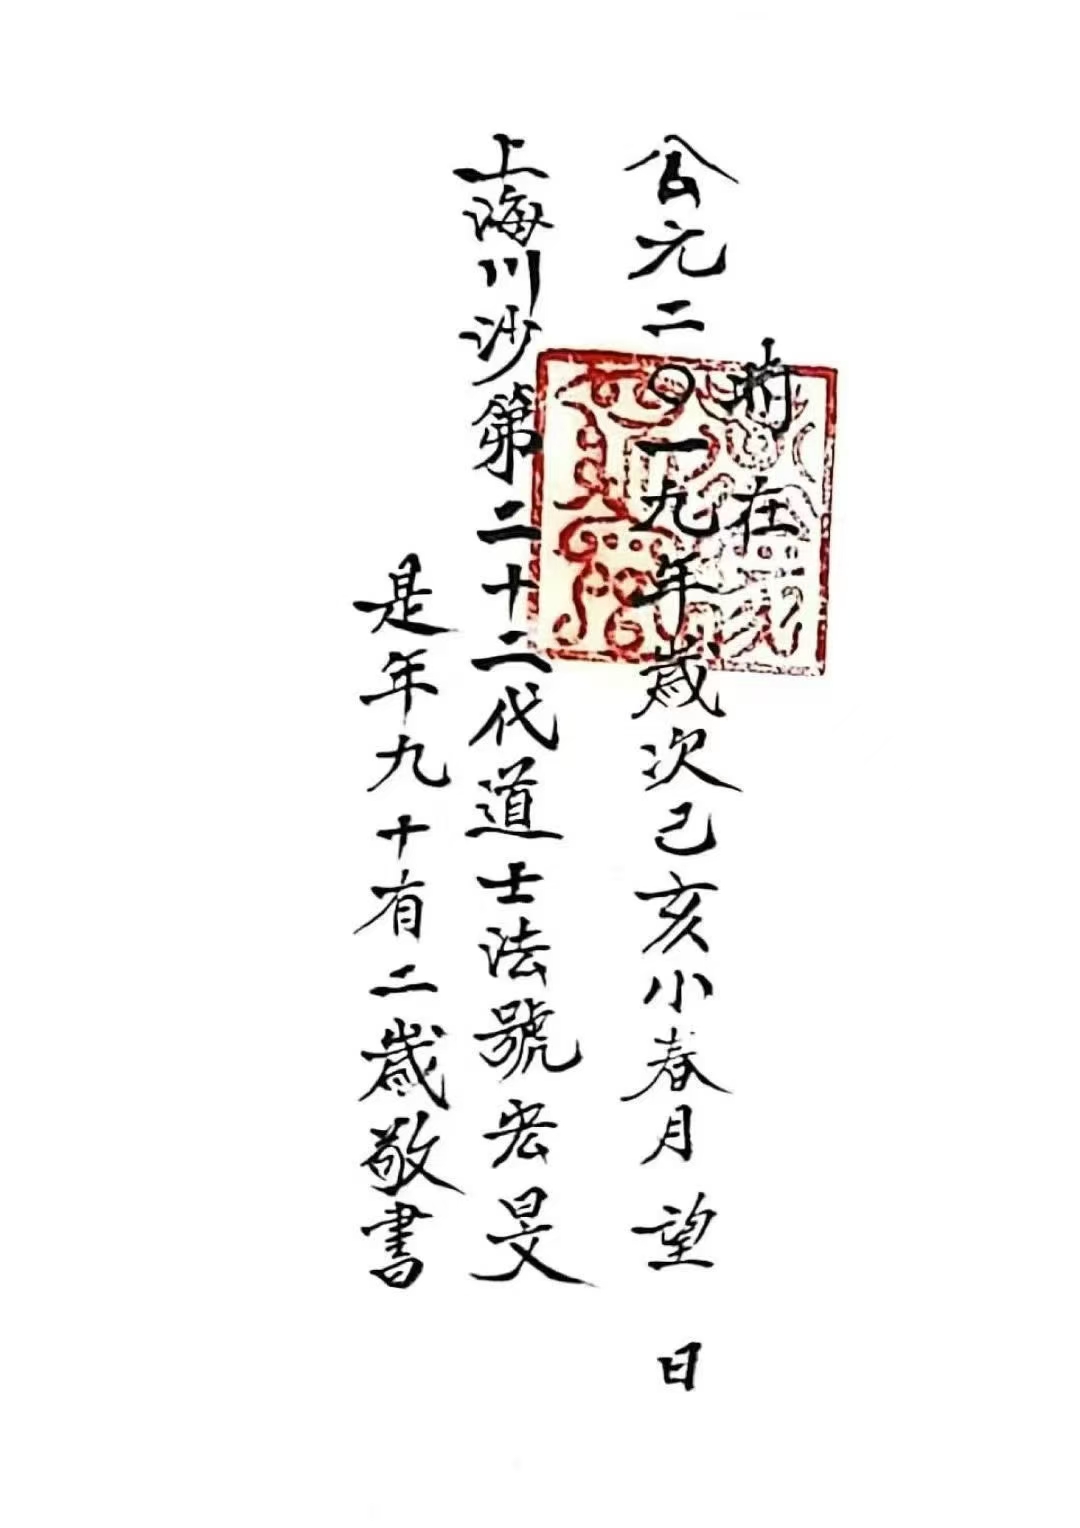 在
公元二〇一九年歲次己亥小春月望日
上海川沙第二十二代道士法號宏旻
是年九十有二歲敬書